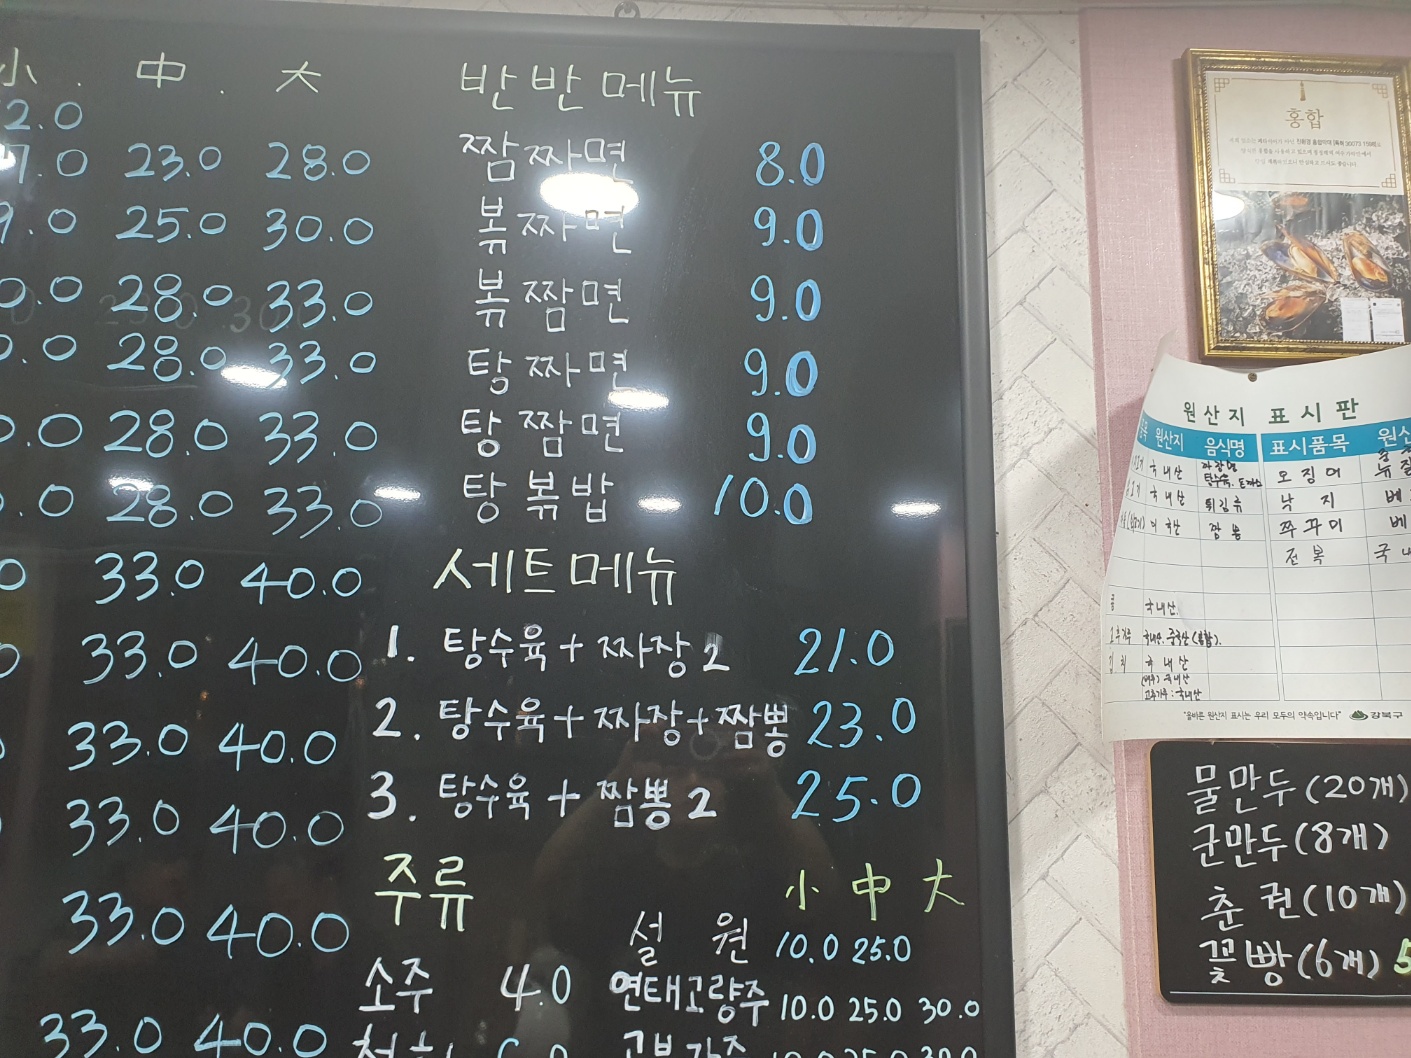 小 . 中 . 大
2.0
7.0 23.0 28.0
9.0 25.0 30.0
0.0 28.0 33.0
0.0 28.0 33.0
0.0 28.0 33.0
0.0 28.0 33.0
0 33.0 40.0
0 33.0 40.0
33.0 40.0
33.0 40.0
33.0 40.0
33.0 40.0
반반메뉴
짬짜면 8.0
볶짜면 9.0
볶짬면 9.0
탕짜면 9.0
탕짬면 9.0
탕볶밥 10.0
세트메뉴
1. 탕수육+짜장2 21.0
2. 탕수육+짜장+짬뽕 23.0
3. 탕수육+짬뽕2 25.0
주류
소주 4.0
小 中 大
설 원 10.0 25.0
연태고량주 10.0 25.0 30.0
홍합
원산지 표시판
원산지 음식명 표시품목
국내산 탕수육 오징어
국내산 낙 지
쭈꾸미
전복
국내산
국내산 중국산
국내산
국내산
고추가루:국내산
"올바른 원산지 표시는 우리 모두의 약속입니다" 강북구
물만두(20개)
군만두(8개)
춘 권(10개)
꽃빵(6개) 5